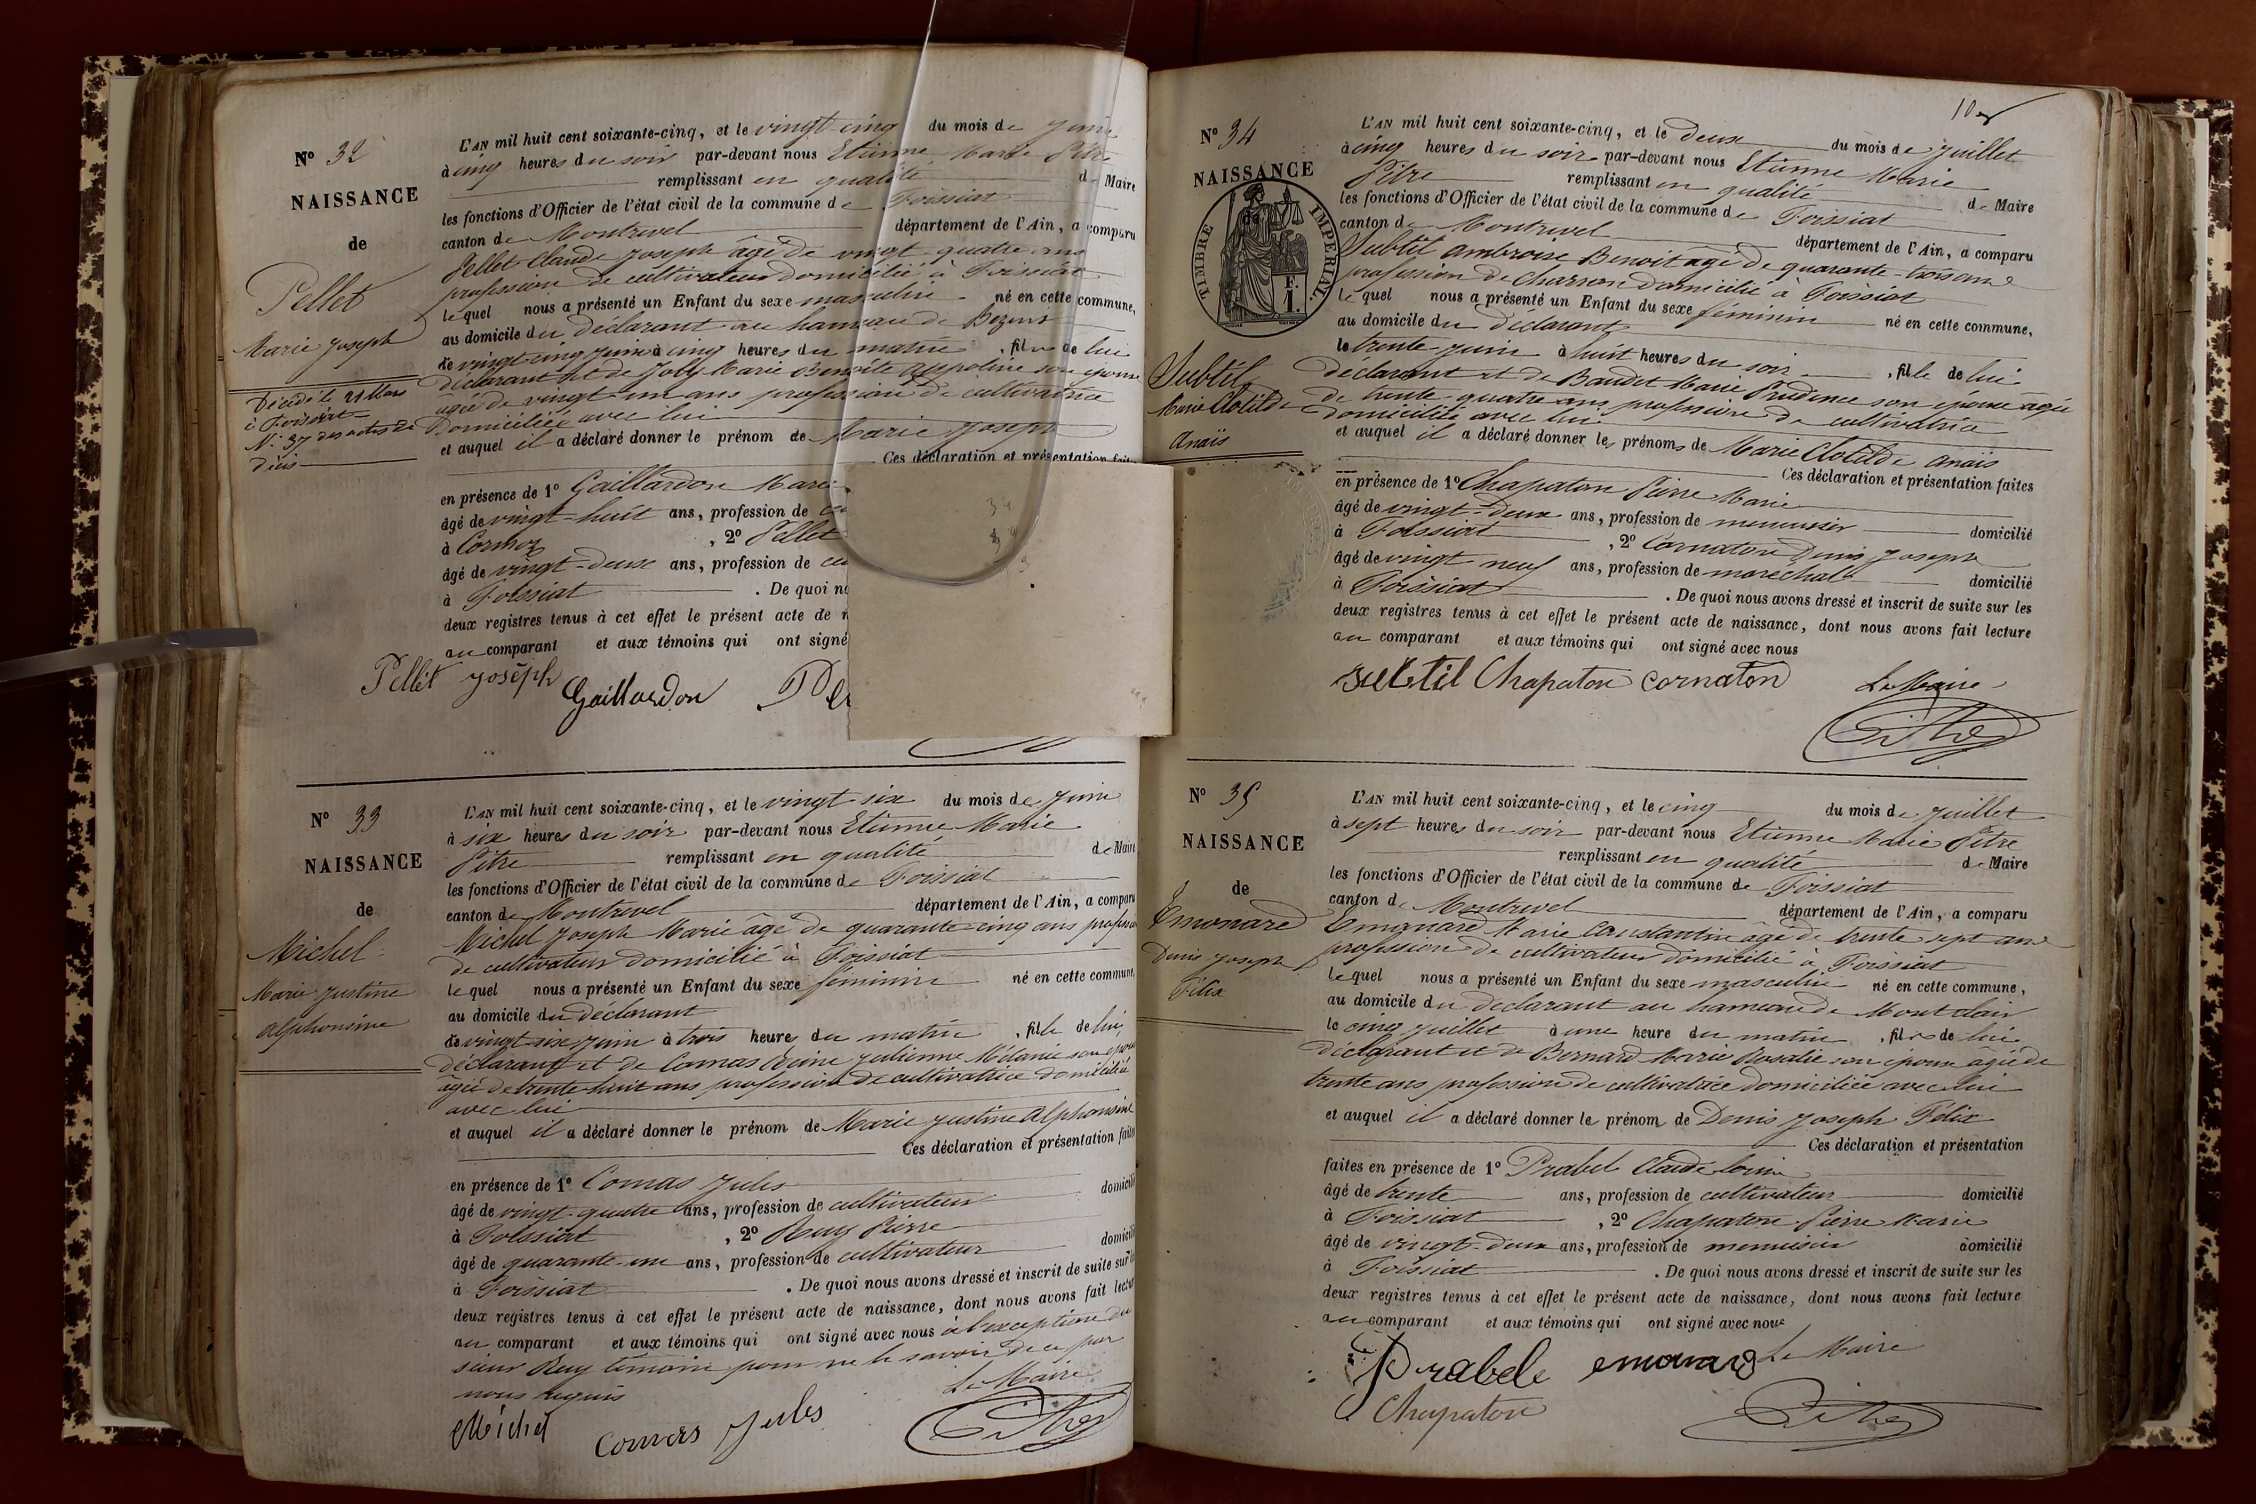 N° 32
NAISSANCE
de
Pellet
Marie Joseph
Décédé le 21 Mars
à Foissiat
N° 37 des actes de
décès
L'AN mil huit cent soixante-cinq, et le vingt-cinq du mois de Juin
à cinq heures du soir par-devant nous Etienne Marie Pitre
remplissant en qualité de Maire
les fonctions d'Officier de l'état civil de la commune de Foissiat
canton de Montrevel département de l'Ain, a comparu
Pellet Claude Joseph âgé de vingt-quatre ans
profession de cultivateur domicilié à Foissiat
lequel nous a présenté un Enfant du sexe masculin né en cette commune,
au domicile du déclarant au hameau de
le vingt-cinq Juin à cinq heures du matin, fils de lui
déclarant et de Joly Marie Benoite Appoline son épouse
âgée de vingt-un ans profession de cultivatrice
domiciliée avec lui
et auquel il a déclaré donner le prénom de Marie Joseph
Ces déclaration et présentation faites
en présence de 1° Gaillardon Marie
âgé de vingt-huit ans, profession de
à Cormoz, 2° Pellet
âgé de vingt-deux ans, profession de
à Foissiat. De quoi
deux registres tenus à cet effet le présent acte de
au comparant et aux témoins qui ont signé
Pellet Joseph Gaillardon
N° 33
NAISSANCE
de
Michel
Marie Justine
Alphonsine
L'AN mil huit cent soixante-cinq, et le vingt six du mois de Juin
à six heures du soir par-devant nous Etienne Marie
Pitre remplissant en qualité de Maire
les fonctions d'Officier de l'état civil de la commune de Foissiat
canton de Montrevel département de l'Ain, a comparu
Michel Joseph Marie âgé de quarante-cinq ans profession
de cultivateur domicilié à Foissiat
lequel nous a présenté un Enfant du sexe féminin né en cette commune,
au domicile du déclarant
le vingt-six Juin à trois heures du matin, fille de lui
déclarant et de Comas Reine Julienne Mélanie son épouse
âgée de trente-huit ans profession de cultivatrice domiciliée
avec lui
et auquel il a déclaré donner le prénom de Marie Justine Alphonsine
Ces déclaration et présentation faites
en présence de 1° Comas Jules
âgé de vingt-quatre ans, profession de cultivateur domicilié
à Foissiat, 2° Ruy Pierre
âgé de quarante-un ans, profession de cultivateur domicilié
à Foissiat. De quoi nous avons dressé et inscrit de suite sur les
deux registres tenus à cet effet le présent acte de naissance, dont nous avons fait lecture
au comparant et aux témoins qui ont signé avec nous à l'exception du
sieur Ruy témoin pour ne le savoir de ce par
nous requis
Le Maire
Michel Jules Pitre
10
N° 34
NAISSANCE
TIMBRE IMPERIAL.
1 F.
Subtil
Marie Clotilde
Anaïs
L'AN mil huit cent soixante-cinq, et le deux du mois de Juillet
à cinq heures du soir par-devant nous Etienne Marie
Pitre remplissant en qualité de Maire
les fonctions d'Officier de l'état civil de la commune de Foissiat
canton de Montrevel département de l'Ain, a comparu
Subtil Ambroise Benoit âgé de quarante-trois ans
profession de charron domicilié à Foissiat
lequel nous a présenté un Enfant du sexe féminin né en cette commune,
au domicile du déclarant
le trente Juin à huit heures du soir, fille de lui
déclarant et de Baudet Marie Prudence son épouse âgée
de trente-quatre ans profession de cultivatrice
domiciliée avec lui
et auquel il a déclaré donner les prénoms de Marie Clotilde Anaïs
Ces déclaration et présentation faites
en présence de 1° Chapaton Pierre Marie
âgé de vingt-deux ans, profession de menuisier domicilié
à Foissiat, 2° Cornaton Denis Joseph
âgé de vingt neuf ans, profession de maréchal domicilié
à Foissiat. De quoi nous avons dressé et inscrit de suite sur les
deux registres tenus à cet effet le présent acte de naissance, dont nous avons fait lecture
au comparant et aux témoins qui ont signé avec nous
Subtil Chapaton Cornaton Le Maire
Pitre
N° 35
NAISSANCE
de
Emonard
Denis Joseph
Félix
L'AN mil huit cent soixante-cinq, et le cinq du mois de Juillet
à sept heures du soir par-devant nous Etienne Marie Pitre
remplissant en qualité de Maire
les fonctions d'Officier de l'état civil de la commune de Foissiat
canton de Montrevel département de l'Ain, a comparu
Emonard Marie Constantin âgé de trente sept ans
profession de cultivateur domicilié à Foissiat
lequel nous a présenté un Enfant du sexe masculin né en cette commune,
au domicile du déclarant au hameau de Mont clair
le cinq Juillet à une heure du matin, fils de lui
déclarant et de Bernard Marie Rosalie son épouse âgée de
trente ans profession de cultivatrice domiciliée avec lui
et auquel il a déclaré donner le prénom de Denis Joseph Félix
Ces déclaration et présentation
faites en présence de 1° Prabel Claude
âgé de trente ans, profession de cultivateur domicilié
à Foissiat, 2° Chapaton Pierre Marie
âgé de vingt-deux ans, profession de menuisier domicilié
à Foissiat. De quoi nous avons dressé et inscrit de suite sur les
deux registres tenus à cet effet le présent acte de naissance, dont nous avons fait lecture
au comparant et aux témoins qui ont signé avec nous
Prabel emonard Le Maire
Chapaton Pitre